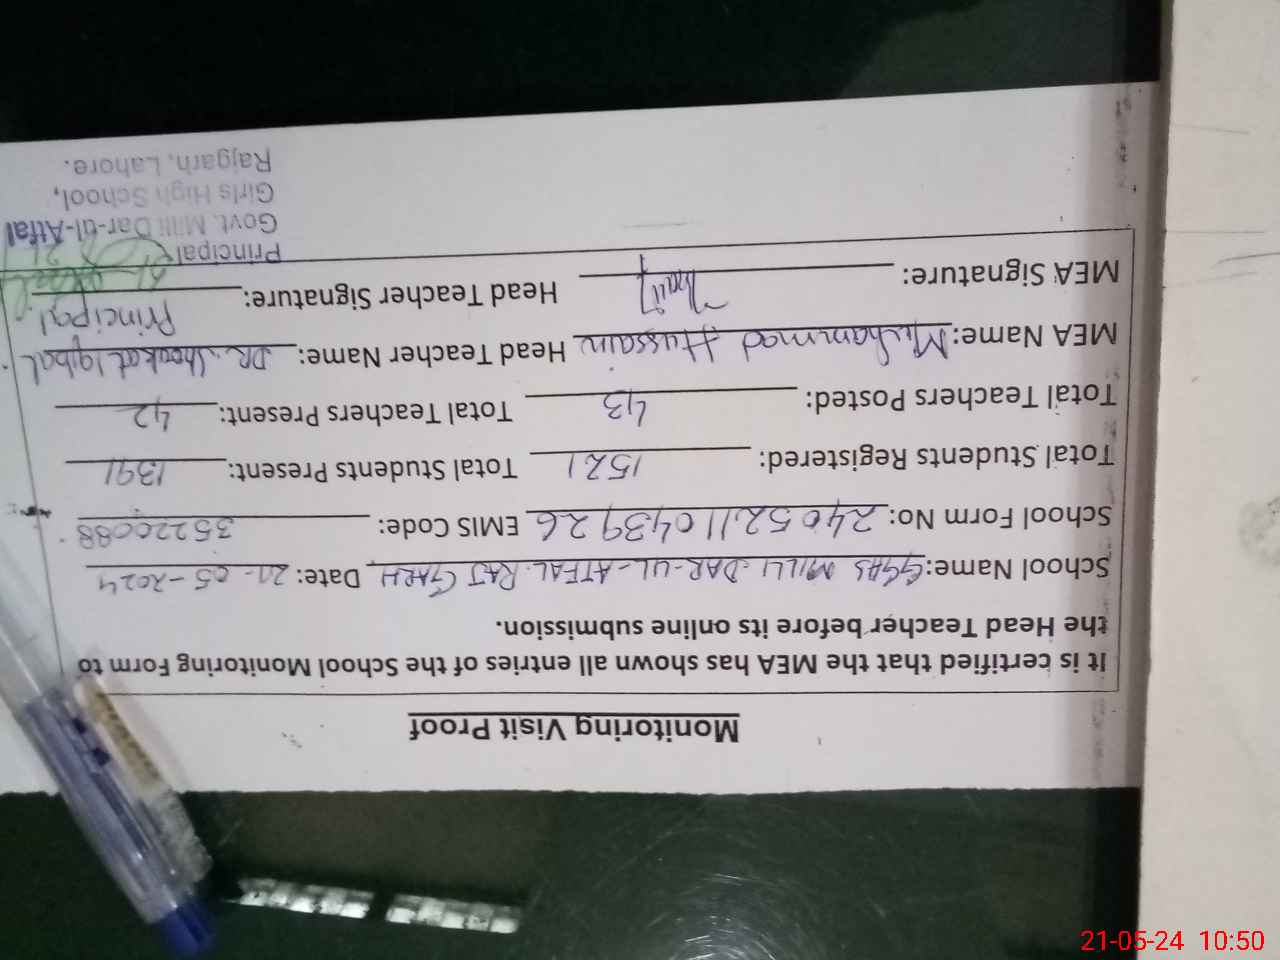 Monitoring Visit Proof
It is certified that the MEA has shown all entries of the School Monitoring Form to
the Head Teacher before its online submission.
School Name: GGHS MILLI DAR-UL-ATFAL RAJ GARH Date: 21-05-2024
School Form No: 2405211043926 EMIS Code: 35220088
Total Students Registered: 1521 Total Students Present: 1391
Total Teachers Posted: 43 Total Teachers Present: 42
MEA Name: Muhammad Hussain Head Teacher Name: DR. Shoukat Iqbal
Principal
MEA Signature: Head Teacher Signature:
Principal
Govt. Milli Dar-ul-Atfal
Girls High School,
Rajgarh, Lahore.
21-05-24 10:50